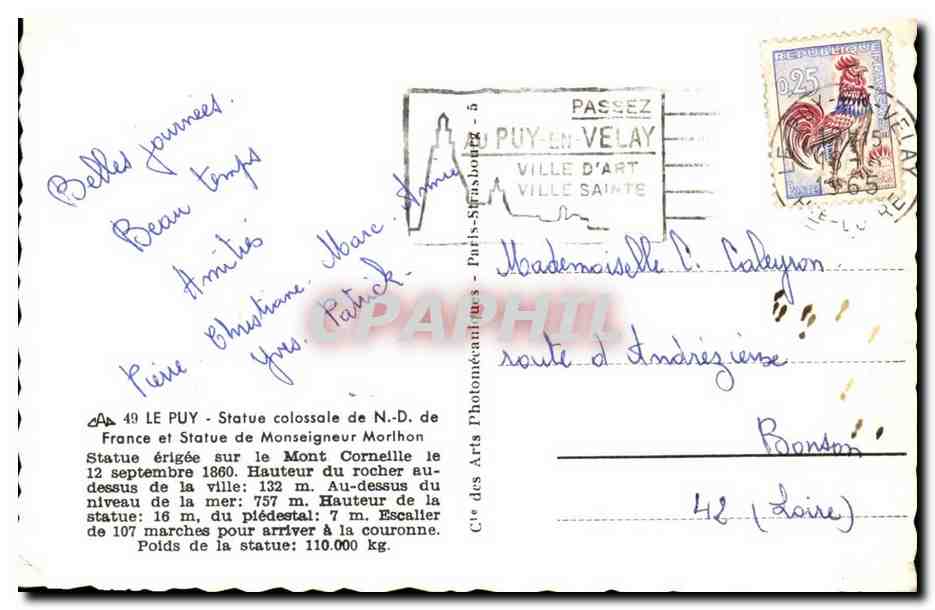 Belles journées.
Beau temps
Amitiés
Pierre. Christiane. Marc. Annie
Yves. Patrick.
49 LE PUY - Statue colossale de N.-D. de
France et Statue de Monseigneur Morlhon
Statue érigée sur le Mont Corneille le
12 septembre 1860. Hauteur du rocher au-
dessus de la ville: 132 m. Au-dessus du
niveau de la mer: 757 m. Hauteur de la
statue: 16 m, du piédestal: 7 m. Escalier
de 107 marches pour arriver à la couronne.
Poids de la statue: 110.000 kg.
Cie des Arts Photomécaniques - Paris-Strasbourg - 5
PASSEZ
AU PUY-EN-VELAY
VILLE D'ART
VILLE SAINTE
REPUBLIQUE FRANÇAISE
0,25
POSTES
1965
Mademoiselle C. Caleyron
route d'Andrézieux
Bonson
42 (Loire)
CPAPHIL